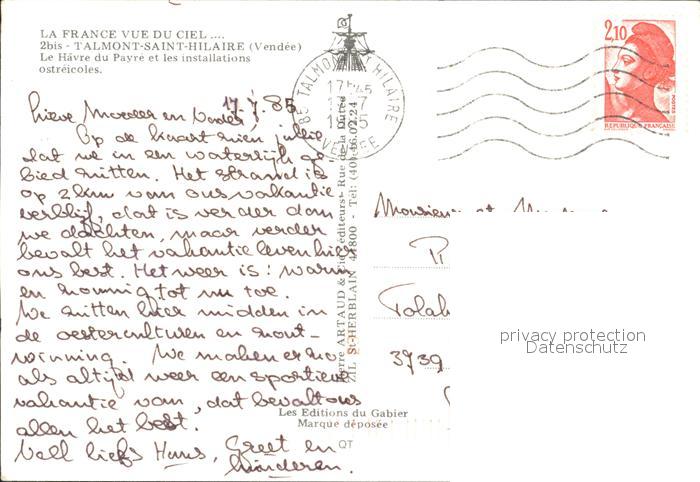 LA FRANCE VUE DU CIEL ....
2bis - TALMONT-SAINT-HILAIRE (Vendée)
Le Hâvre du Payré et les installations
ostréicoles.
17.7.85
Lieve Moeder en
Op de kaart zien jullie
dat we in een waterrijk ge-
bied zitten. Het strand is
op 2 km van ons vakantie
verblijf, dat is verder dan
we dachten, maar verder
bevalt het vakantieleven hier
ons best. Het weer is: warm
en zonnig tot nu toe.
We zitten hier midden in
de oesterculturen en zout-
winning. We maken er nu
als altijd weer een sportieve
vakantie van, dat bevalt ons
allen het best.
Veel liefs Hans, Greet en
kinderen.
Pierre ARTAUD & Cie, éditeurs - Rue de la
ZIL ST-HERBLAIN 44800 - Tel: (40) 46.02.24
Les Editions du Gabier
Marque déposée
QT
85 TALMONT ST HILAIRE
17H45
17-7
1985
VENDEE
2,10
POSTES
REPUBLIQUE FRANÇAISE
Monsieur et
3739
privacy protection
Datenschutz